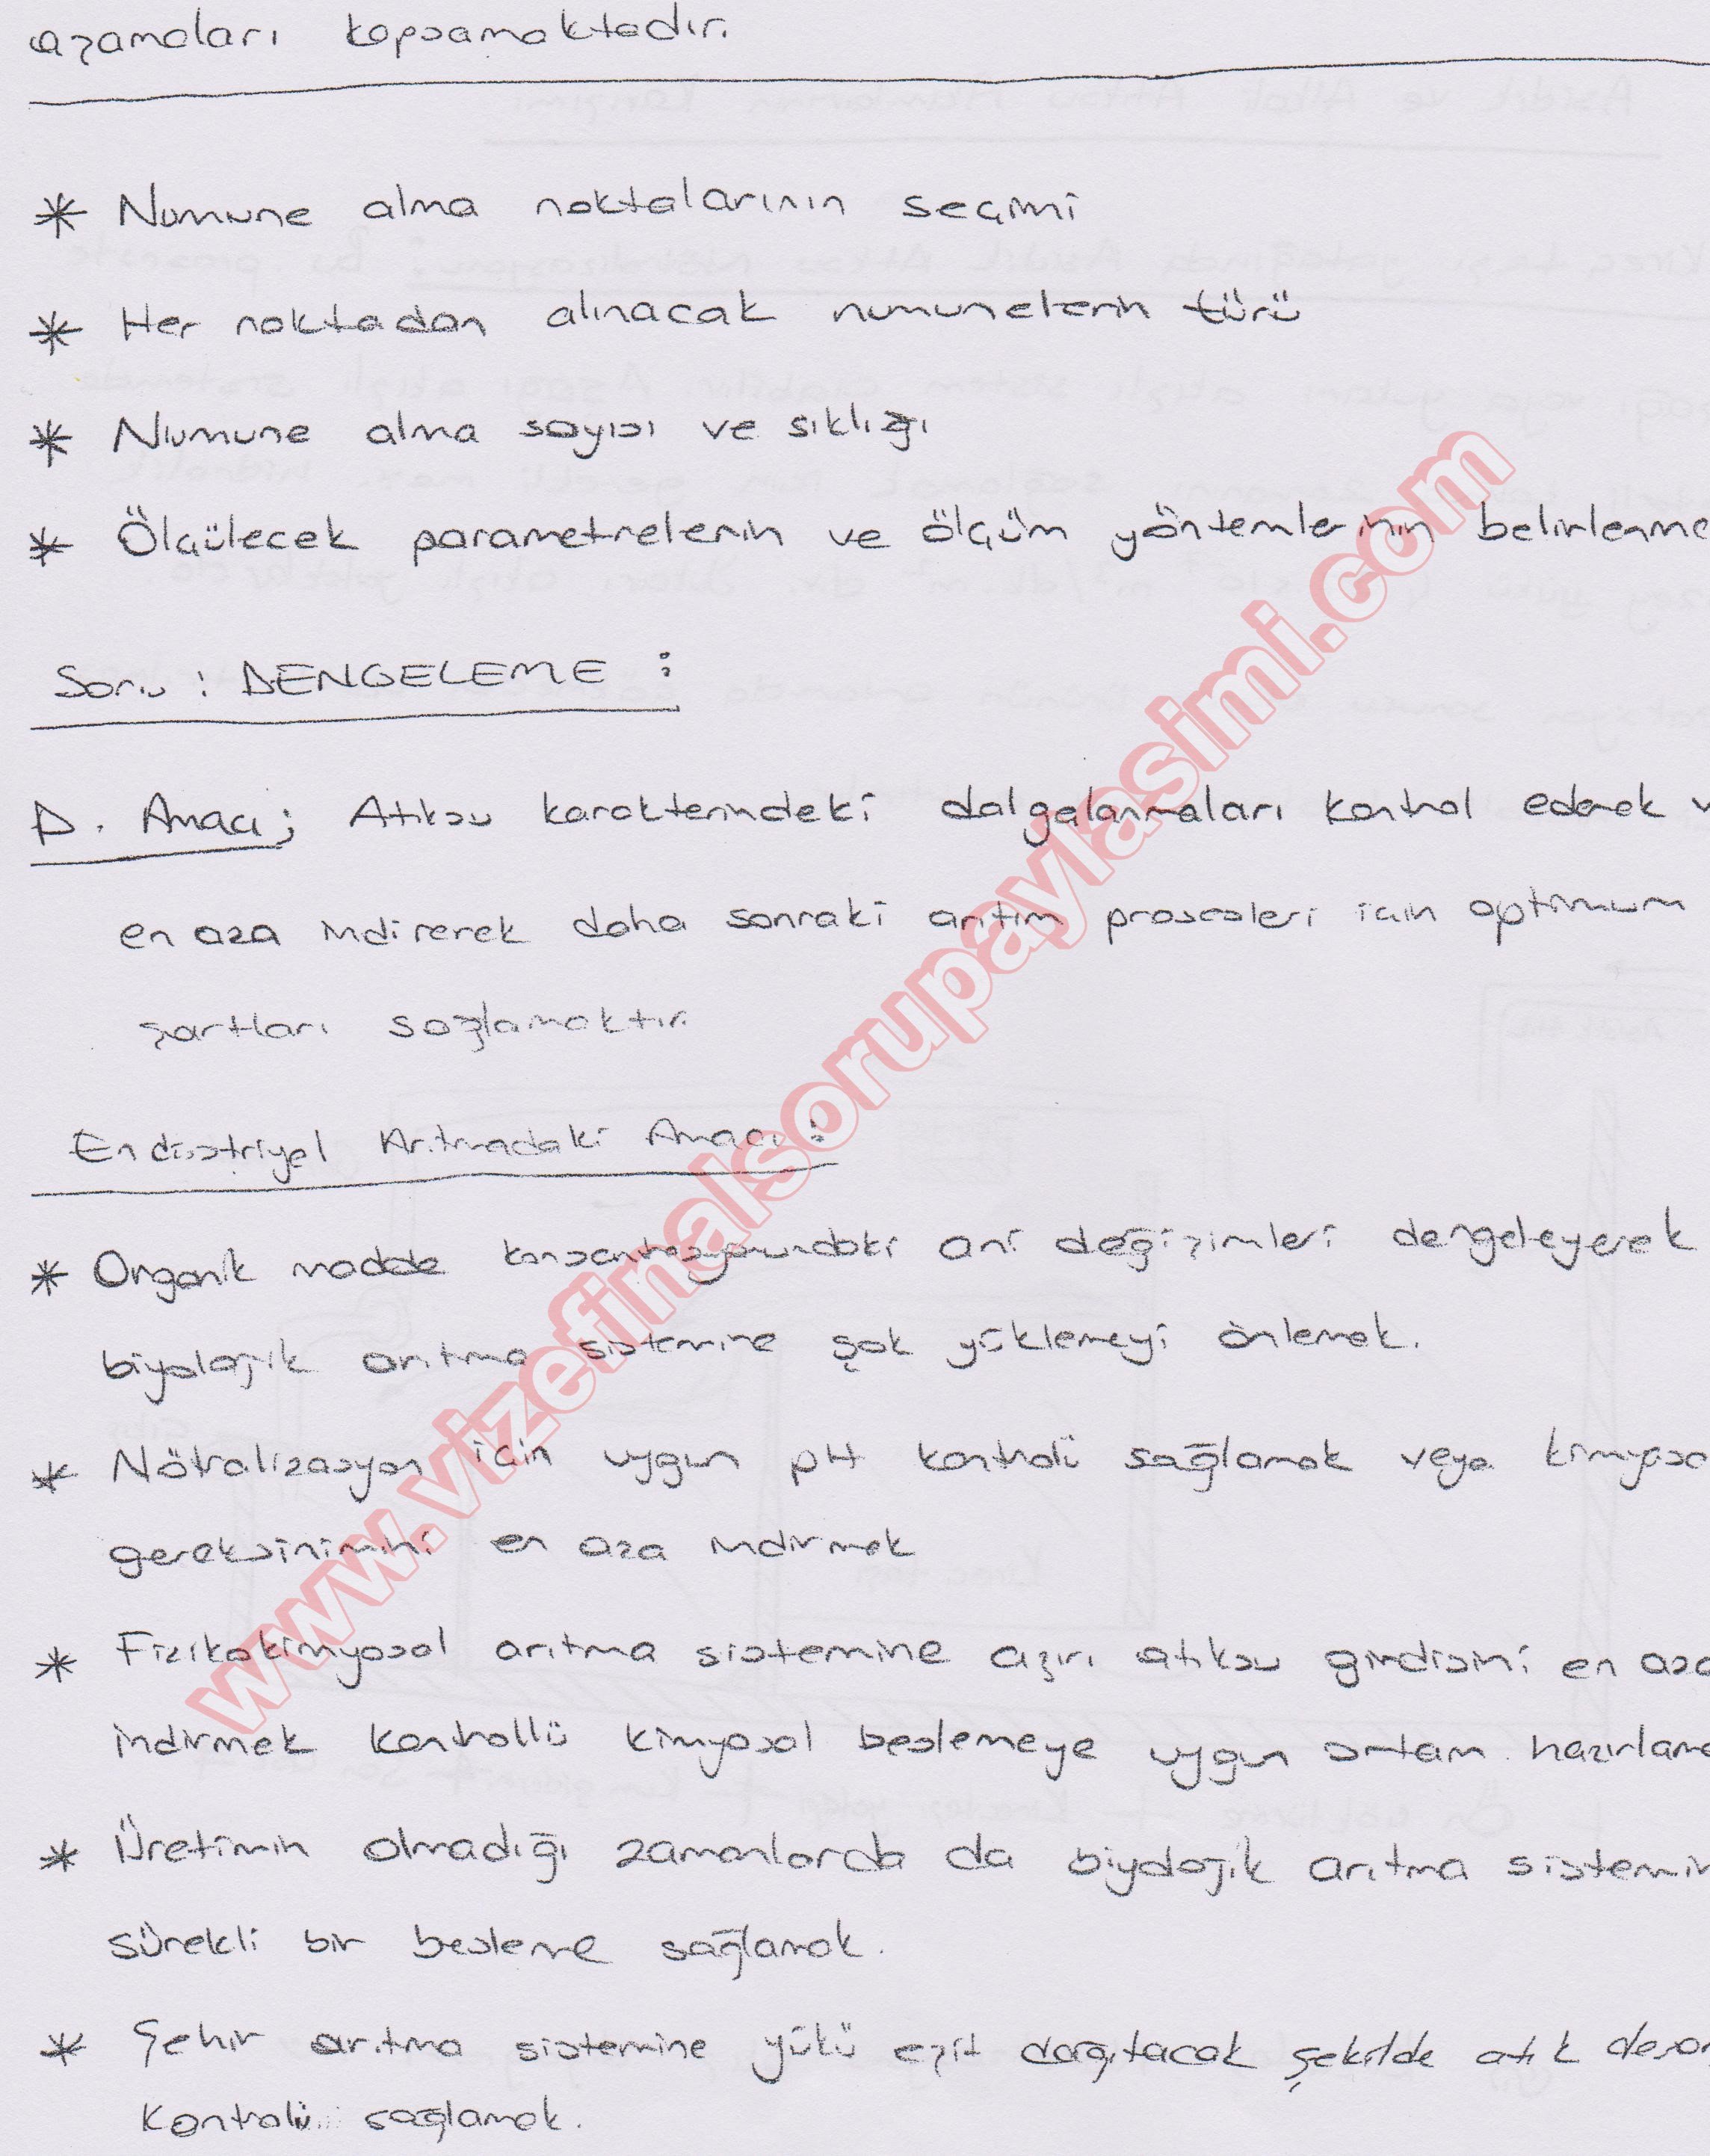 aşamaları kapsamaktadır.
* Numune alma noktalarının seçimi
* Her noktadan alınacak numunelerin türü
* Numune alma sayısı ve sıklığı
* Ölçülecek parametrelerin ve ölçüm yöntemlerinin belirlenme
Soru : DENGELEME :
D. Amacı; Atıksu karakterindeki dalgalanmaları kontrol ederek v
en aza indirerek daha sonraki arıtım prosesleri için optimum
şartları sağlamaktır.
Endüstriyel Arıtmadaki Amacı :
* Organik madde konsantrasyonundaki ani değişimleri dengeleyerek
biyolojik arıtma sistemine şok yüklemeyi önlemek.
* Nötralizasyon için uygun pH kontrolü sağlamak veya kimyasa
gereksinimini en aza indirmek
* Fizikokimyasal arıtma sistemine aşırı atıksu girdisini en aza
indirmek kontrollü kimyasal beslemeye uygun ortam hazırlama
* Üretimin olmadığı zamanlarda da biyolojik arıtma sistemin
sürekli bir besleme sağlamak.
* Şehir arıtma sistemine yükü eşit dağıtacak şekilde atık deşar
kontrolü sağlamak.
www.vizefinalsorupaylasimi.com